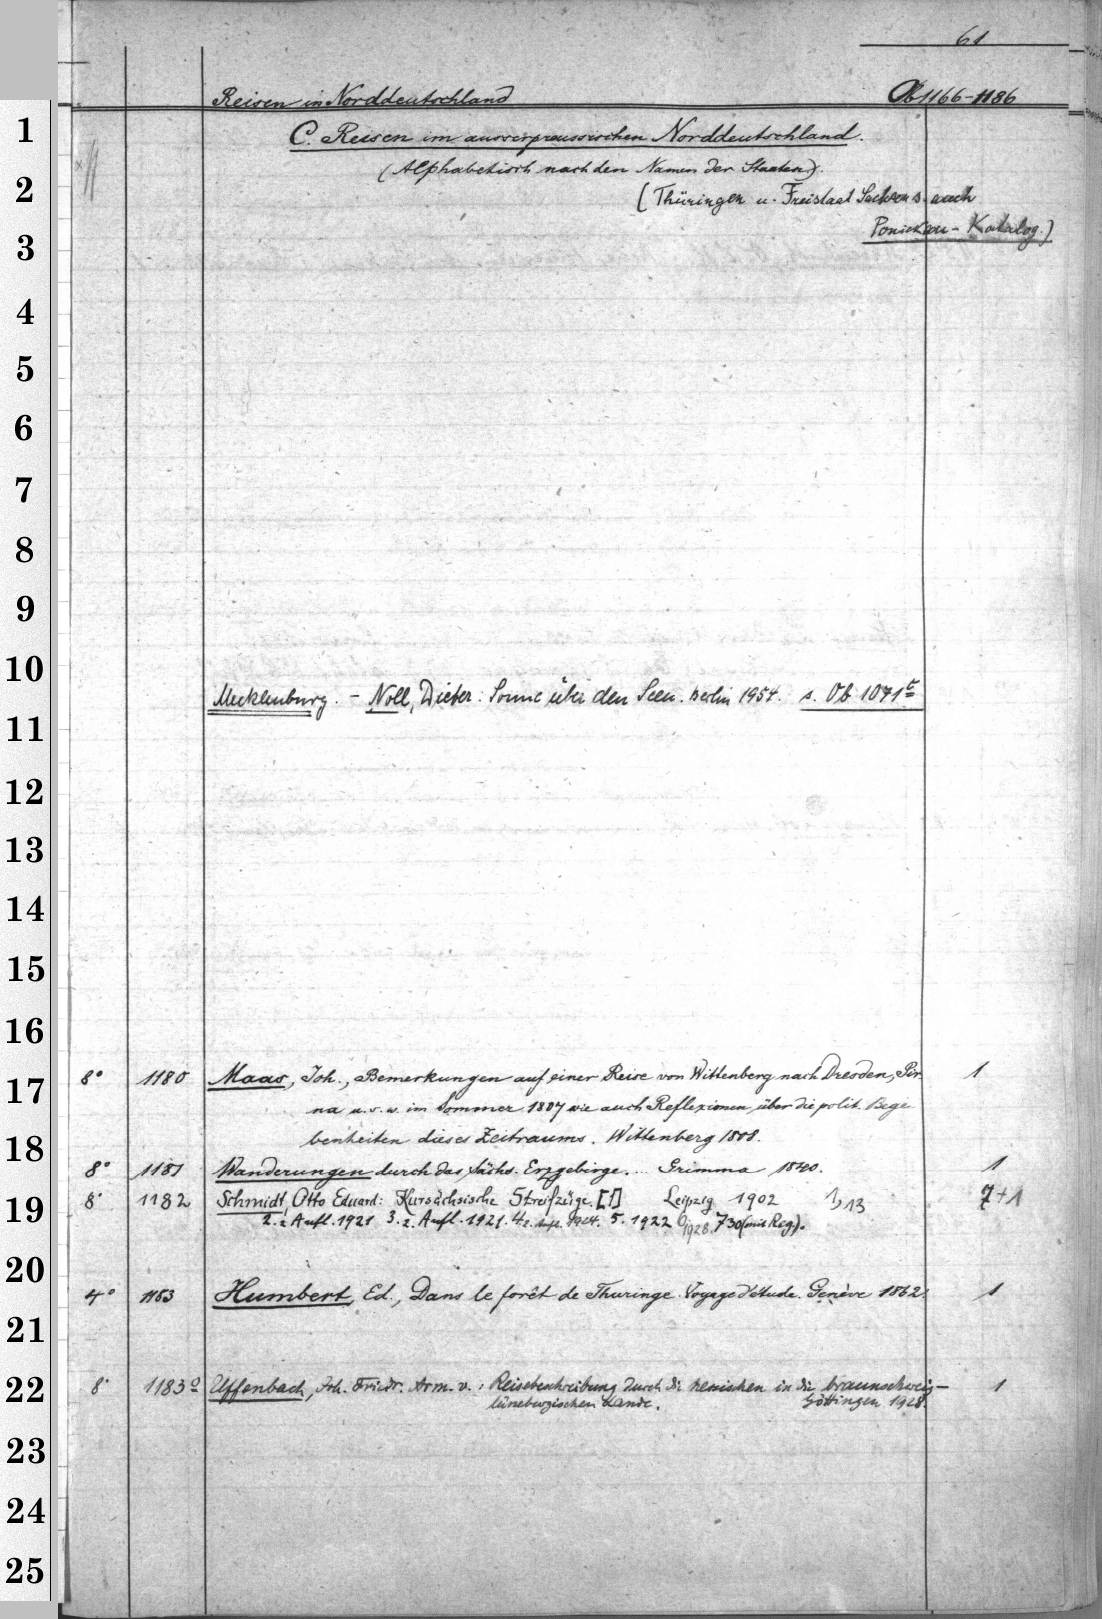 61
Reisen in Norddeutschland Ob 1166-1186
1
C. Reisen im ausserpreussischen Norddeutschland.
(Alphabetisch nach den Namen der Staaten).
2
(Thüringen u. Freistaat Sachsen s. auch
Ponickau-Katalog.)
3
4
5
6
7
8
9
10
Mecklenburg. - Noll, Dieter: Sonne über den Seen. Berlin 1954. s. Ob 1071
11
12
13
14
15
16
17
8° 1180 Maas, Joh., Bemerkungen auf einer Reise von Wittenberg nach Dresden, Pir 1
na u.s.w. im Sommer 1807 wie auch Reflexionen über die polit. Bege
benheiten dieses Zeitraums. Wittenberg 1808.
18
8° 1181 Wanderungen durch das sächs. Erzgebirge.... Grimma 1840. 1
19
8° 1182 Schmidt, Otto Eduard: Kursächsische Streifzüge. [1] Leipzig 1902 7+1
2. 2 Aufl. 1921 3. 2. Aufl. 1921. 4. 5. 1922 6 1928. 7 30 (mit Reg).
20
4° 1183 Humbert, Ed., Dans le forêt de Thuringe. Voyage d'étude. Genève 1862. 1
21
22
8° 1183a Uffenbach, Joh. Friedr. Arm. v.: Reisebeschreibung durch die hessischen in die braunschweig- 1
lüneburgischen Lande. Göttingen 1928.
23
24
25